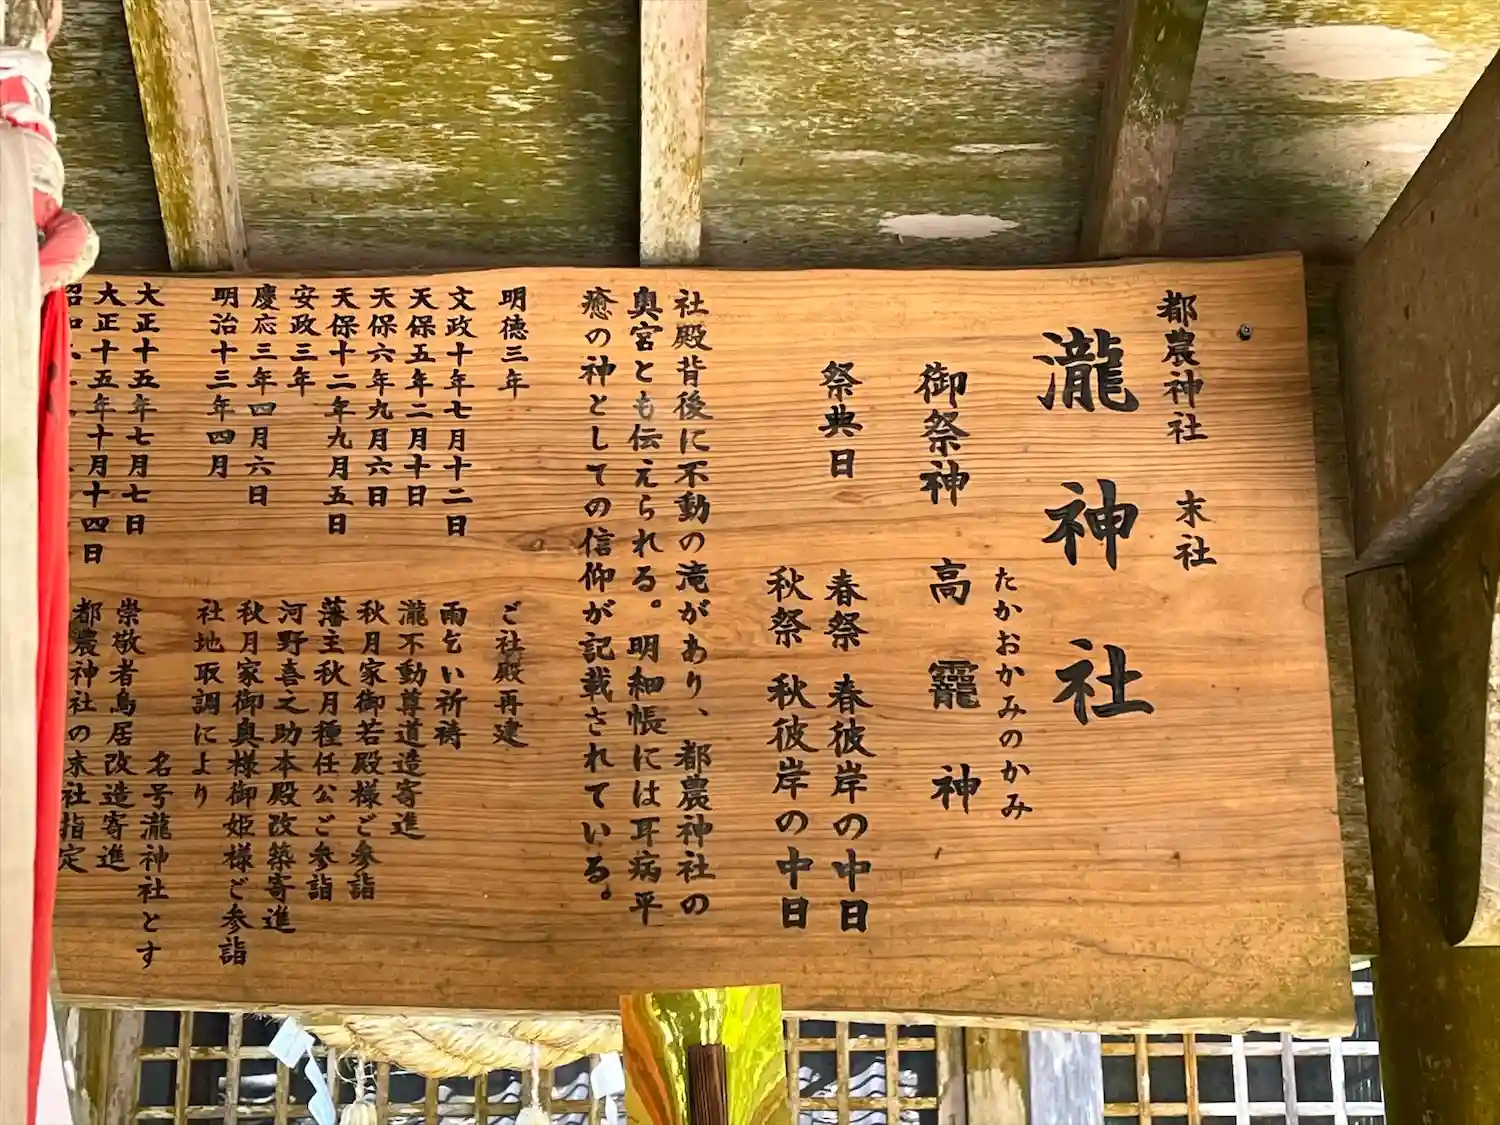 都農神社 末社
瀧神社
たかおかみのかみ
御祭神 高龗神
祭典日 春祭 春彼岸の中日
秋祭 秋彼岸の中日
社殿背後に不動の滝があり、都農神社の
奥宮とも伝えられる。明細帳には耳病平
癒の神としての信仰が記載されている。
明徳三年 ご社殿再建
文政十年七月十二日 雨乞い祈祷
天保五年二月十日 瀧不動尊道造寄進
天保六年九月六日 秋月家御若殿様ご参詣
天保十二年九月五日 藩主秋月種任公ご参詣
安政三年 河野喜之助本殿改築寄進
慶応三年四月六日 秋月家御奥様御姫様ご参詣
明治十三年四月 社地取調により
名号瀧神社とす
大正十五年七月七日 崇敬者鳥居改造寄進
大正十五年十月十四日 都農神社の末社指定
昭和